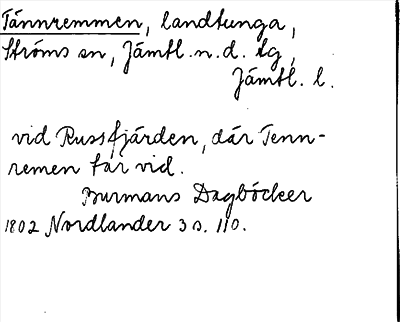 Tännremmen, landtunga,
Ströms sn, Jämtl. n. d. tg,
Jämtl. l.
vid Russfjärden, där Tenn-
remen tar vid.
Burmans Dagböcker
1802 Nordlander 3 s. 110.